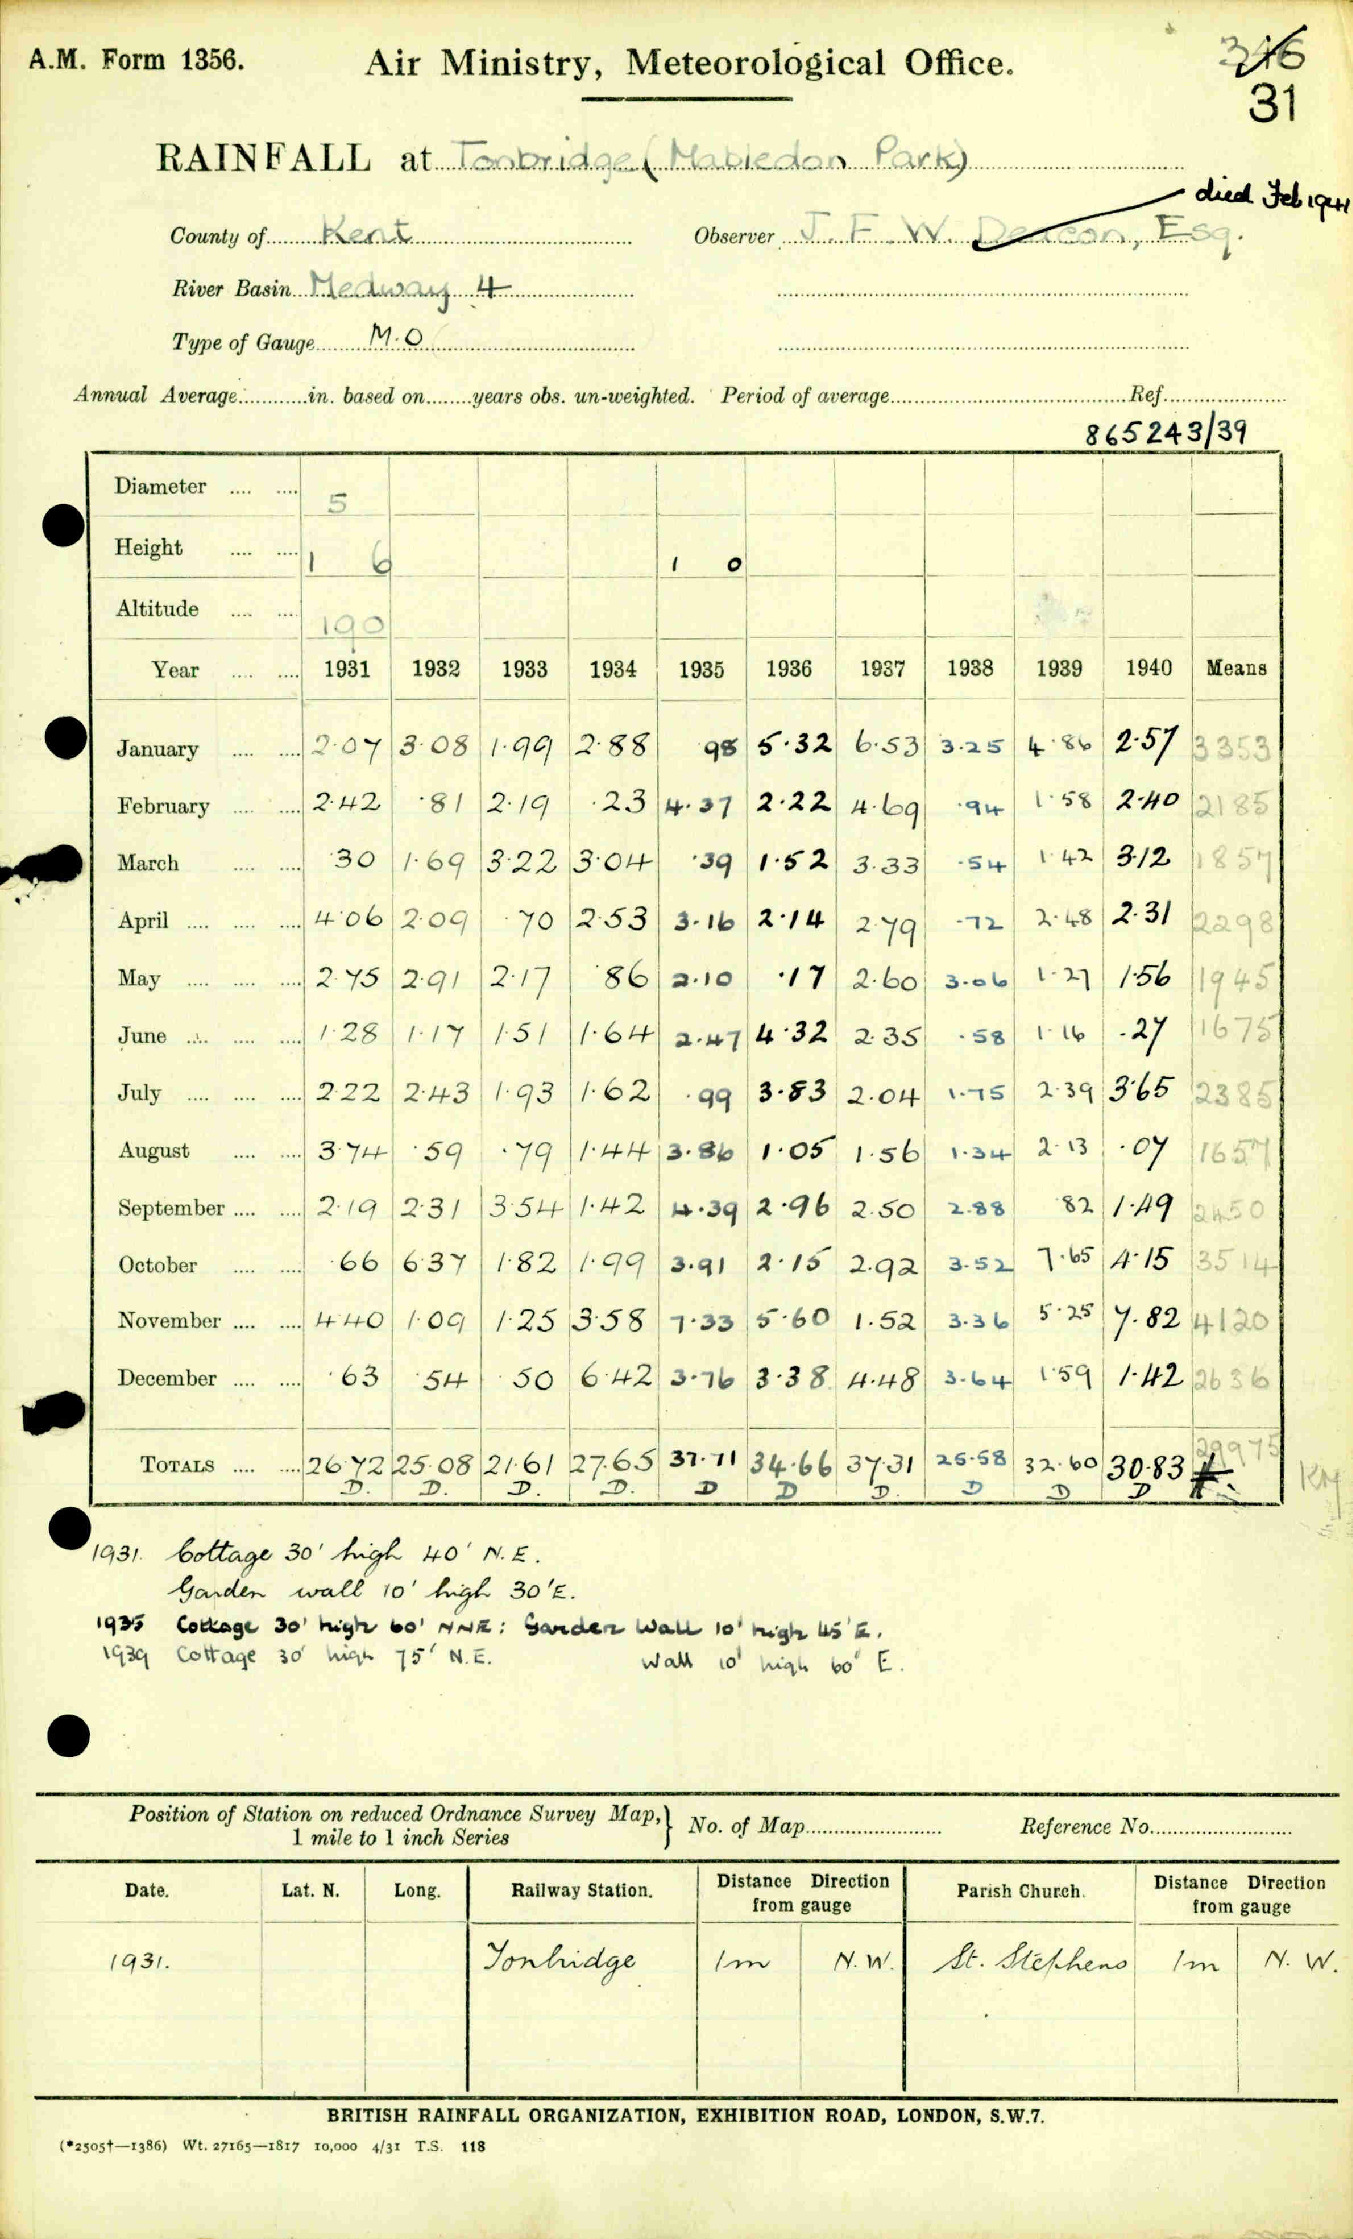 A.M. Form 1356. Air Ministry, Meteorological Office. 346
31
RAINFALL at Tonbridge (Mabledon Park)
died Feb 1941
County of Kent Observer J. F. W. Deacon, Esq.
River Basin Medway 4
Type of Gauge M.O
Annual Average in. based on years obs. un-weighted. Period of average Ref.
865243/39
Diameter 5
Height 1 6 1 0
Altitude 190
Year 1931 1932 1933 1934 1935 1936 1937 1938 1939 1940 Means
January 2.07 3.08 1.99 2.88 98 5.32 6.53 3.25 4.86 2.57 3353
February 2.42 .81 2.19 .23 4.37 2.22 4.69 .94 1.58 2.40 2185
March .30 1.69 3.22 3.04 .39 1.52 3.33 .54 1.42 3.12 1857
April 4.06 2.09 .70 2.53 3.16 2.14 2.79 .72 2.48 2.31 2298
May 2.75 2.91 2.17 .86 2.10 .17 2.60 3.06 1.27 1.56 1945
June 1.28 1.17 1.51 1.64 2.47 4.32 2.35 .58 1.16 .27 1675
July 2.22 2.43 1.93 1.62 .99 3.83 2.04 1.75 2.39 3.65 2385
August 3.74 .59 .79 1.44 3.86 1.05 1.56 1.34 2.13 .07 1657
September 2.19 2.31 3.54 1.42 4.39 2.96 2.50 2.88 .82 1.49 2450
October .66 6.37 1.82 1.99 3.91 2.15 2.92 3.52 7.65 4.15 3514
November 4.40 1.09 1.25 3.58 7.33 5.60 1.52 3.36 5.25 7.82 4120
December .63 .54 .50 6.42 3.76 3.38 4.48 3.64 1.59 1.42 2636
TOTALS 26.72 25.08 21.61 27.65 37.71 34.66 37.31 25.58 32.60 30.83 29975
D. D. D. D. D D D. D D D
1931. Cottage 30' high 40' N.E.
Garden wall 10' high 30' E.
1935 Cottage 30' high 60' NNE: Garden Wall 10' high 45' E.
1939 Cottage 30' high 75' N.E. Wall 10' high 60' E.
Position of Station on reduced Ordnance Survey Map, } No. of Map Reference No.
1 mile to 1 inch Series
Date. Lat. N. Long. Railway Station. Distance Direction from gauge Parish Church. Distance Direction from gauge
1931. Tonbridge 1m N.W. St. Stephens 1m N.W.
BRITISH RAINFALL ORGANIZATION, EXHIBITION ROAD, LONDON, S.W.7.
(*2505†—1386) Wt. 27165—1817 10,000 4/31 T.S. 118